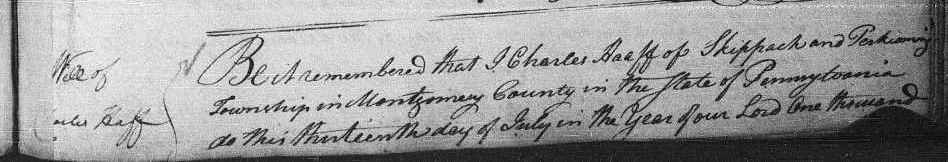 Will of
Haff
Be it remembered that I Charles Haaff of Skippack and Perkioming
Township in Montgomery County in the State of Pennsylvania
do this thirteenth day of July in the Year of our Lord One thousand